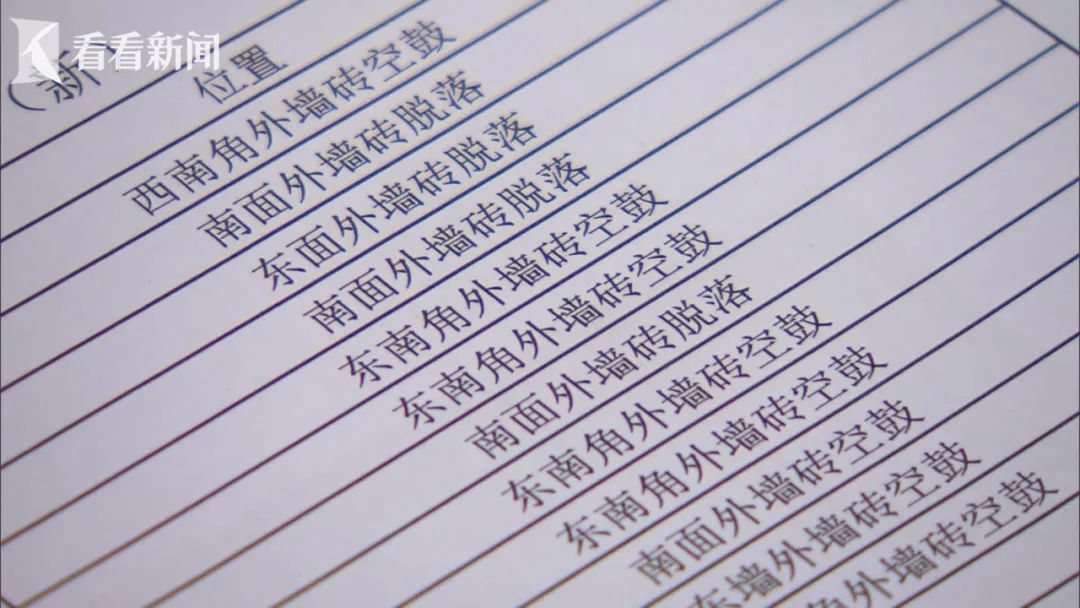 看看新闻
（新
位置
西南角外墙砖空鼓
南面外墙砖脱落
东面外墙砖脱落
南面外墙砖脱落
东南角外墙砖空鼓
东南角外墙砖空鼓
南面外墙砖脱落
东南角外墙砖空鼓
东南角外墙砖空鼓
南面外墙砖空鼓
东墙外墙砖空鼓
角外墙砖空鼓